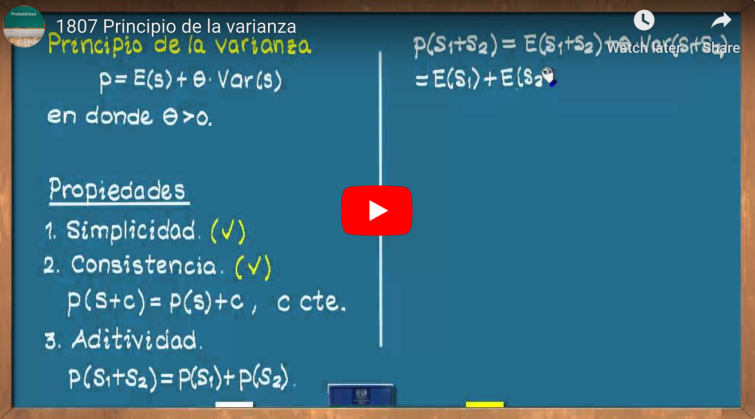 Probabilidad
1807 Principio de la varianza
Watch later
Share
Principio de la varianza
p = E(S) + θ · Var(S)
en donde θ > 0.
Propiedades
1. Simplicidad. (✓)
2. Consistencia. (✓)
p(S+c) = p(S) + c , c cte.
3. Aditividad.
p(S₁+S₂) = p(S₁) + p(S₂).
p(S₁+S₂) = E(S₁+S₂) + θ · Var(S₁+S₂)
= E(S₁) + E(S₂